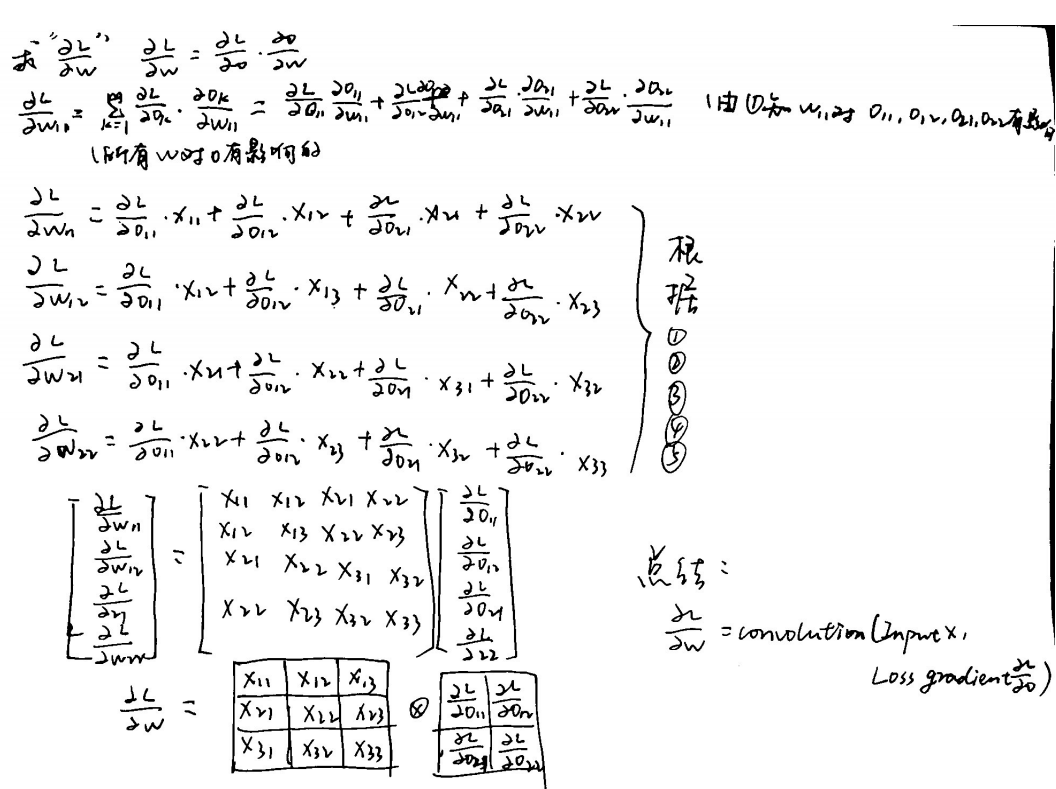 求 "∂L/∂W" ∂L/∂W = ∂L/∂O · ∂O/∂W
∂L/∂W11 = Σ(k=1..m) ∂L/∂Ok · ∂Ok/∂W11 = ∂L/∂O11 ∂O11/∂W11 + ∂L/∂O12 ∂O12/∂W11 + ∂L/∂O21 · ∂O21/∂W11 + ∂L/∂O22 · ∂O22/∂W11 (由①知 W11对 O11, O12, O21, O22有影响
(所有W对O有影响的
∂L/∂W11 = ∂L/∂O11 · X11 + ∂L/∂O12 · X12 + ∂L/∂O21 · X21 + ∂L/∂O22 · X22
∂L/∂W12 = ∂L/∂O11 · X12 + ∂L/∂O12 · X13 + ∂L/∂O21 · X22 + ∂L/∂O22 · X23
∂L/∂W21 = ∂L/∂O11 · X21 + ∂L/∂O12 · X22 + ∂L/∂O21 · X31 + ∂L/∂O22 · X32
∂L/∂W22 = ∂L/∂O11 · X22 + ∂L/∂O12 · X23 + ∂L/∂O21 · X32 + ∂L/∂O22 · X33
根
据
①
②
③
④
⑤
[∂L/∂W11 ∂L/∂W12 ∂L/∂21 ∂L/∂W22] =
X11 X12 X21 X22
X12 X13 X22 X23
X21 X22 X31 X32
X22 X23 X32 X33
[∂L/∂O11 ∂L/∂O12 ∂L/∂O21 ∂L/∂22]
∂L/∂W =
X11 X12 X13
X21 X22 X23
X31 X32 X33
⊗
∂L/∂O11 ∂L/∂O12
∂L/∂O21 ∂L/∂O22
结:
∂L/∂W = convolution(Input X,
Loss gradient ∂L/∂O)